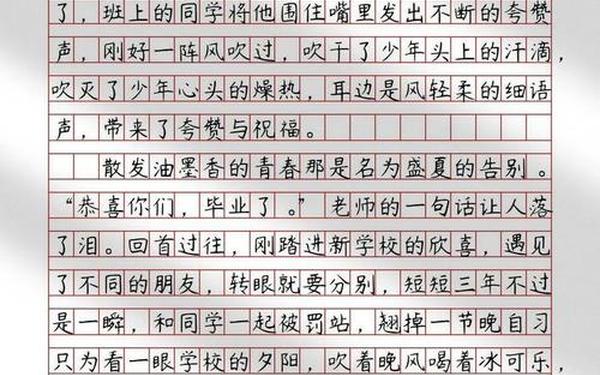 了，班上的同学将他围住嘴里发出不断的夸赞
声，刚好一阵风吹过，吹干了少年头上的汗滴，
吹灭了少年心头的燥热，耳边是风轻柔的细语
声，带来了夸赞与祝福。
散发油墨香的青春那是名为盛夏的告别。
“恭喜你们，毕业了。”老师的一句话让人落
了泪。回首过往，刚踏进新学校的欣喜，遇见
了不同的朋友，转眼就要分别，短短三年不过
是一瞬，和同学一起被罚站，翘掉一节晚自习
只为看一眼学校的夕阳，吹着晚风喝着冰可乐，